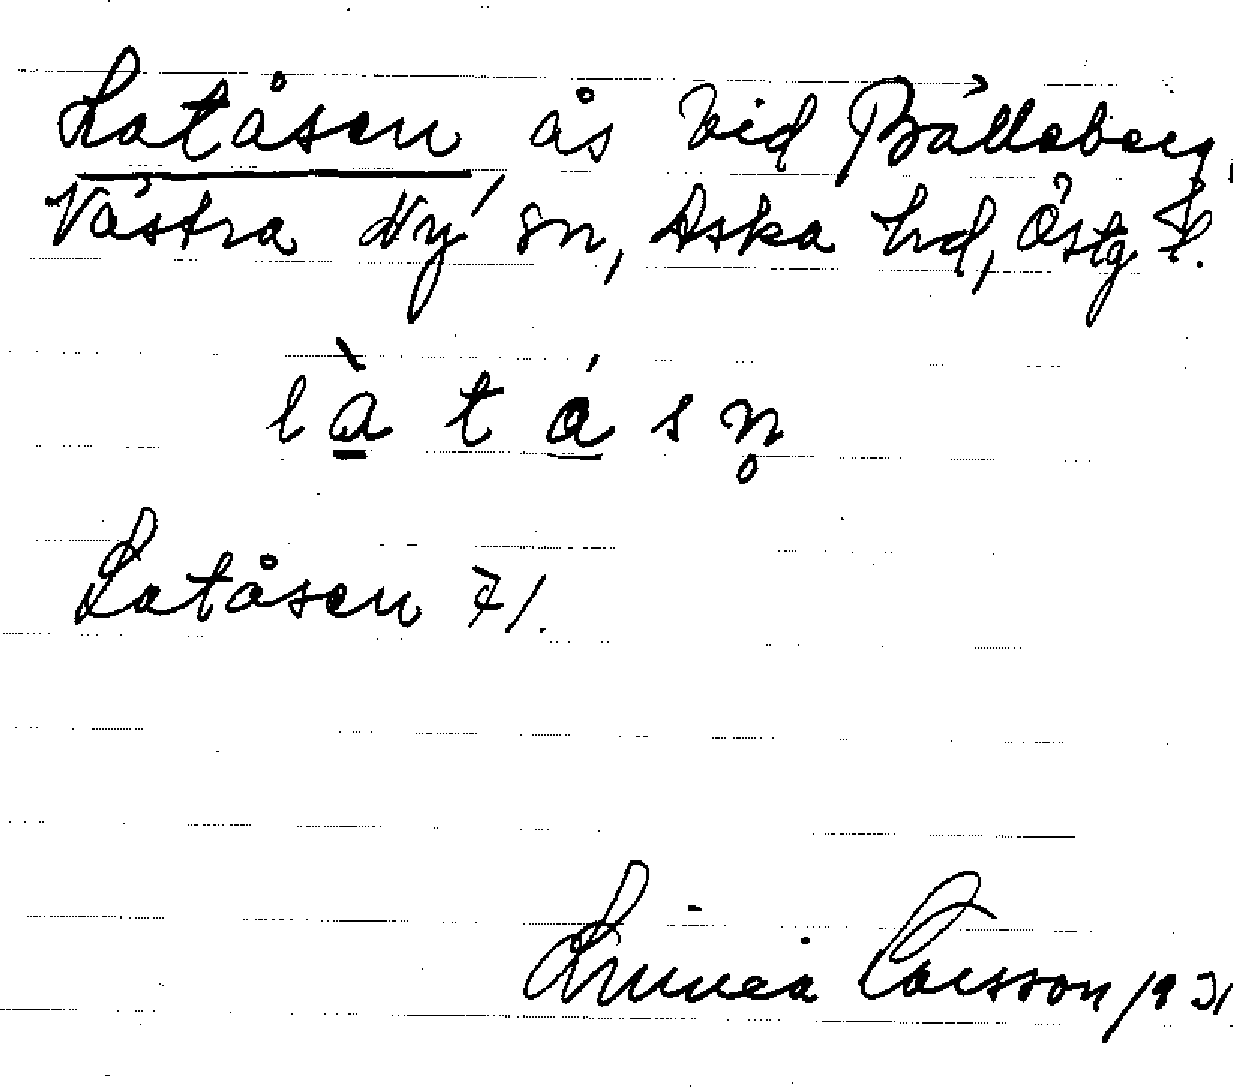 Latåsen, ås vid Bålleberg,
Västra Ny sn, Aska hd, Östg. l.
l à t á s n̥
Latåsen 71.
Linnea Carsson 1931